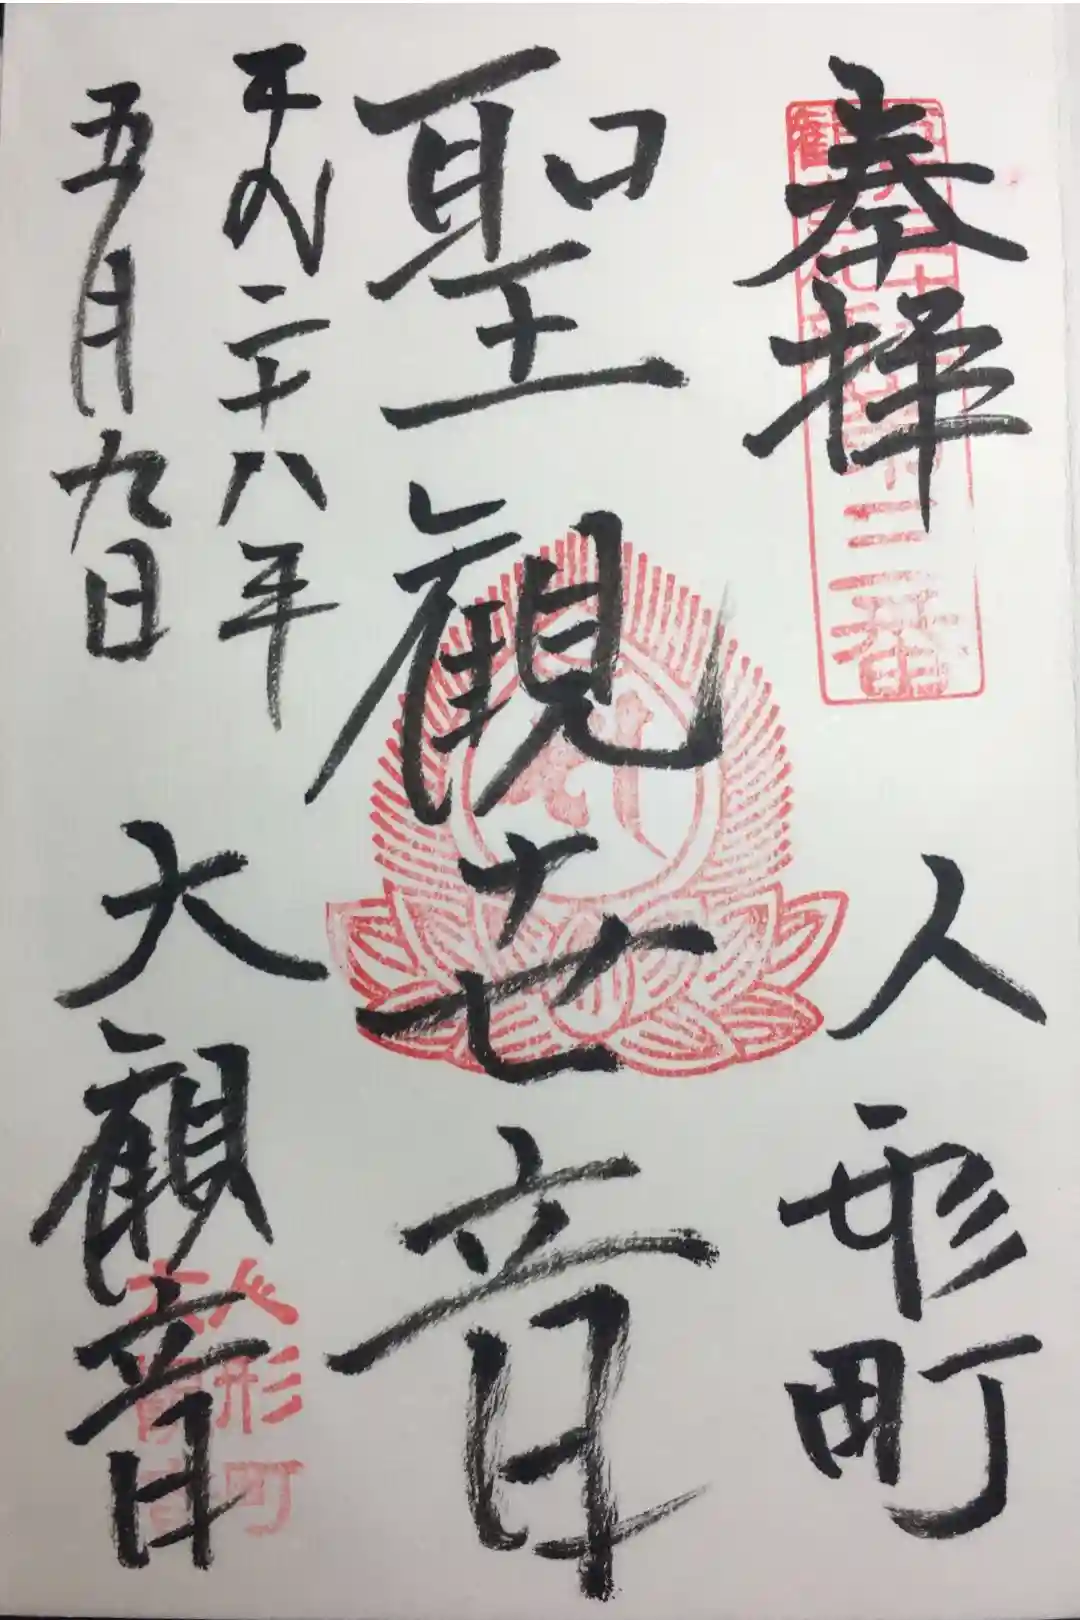 奉拝
人形町
聖觀世音
平成二十八年
五月九日
大観音
第三番
人形町
大観音